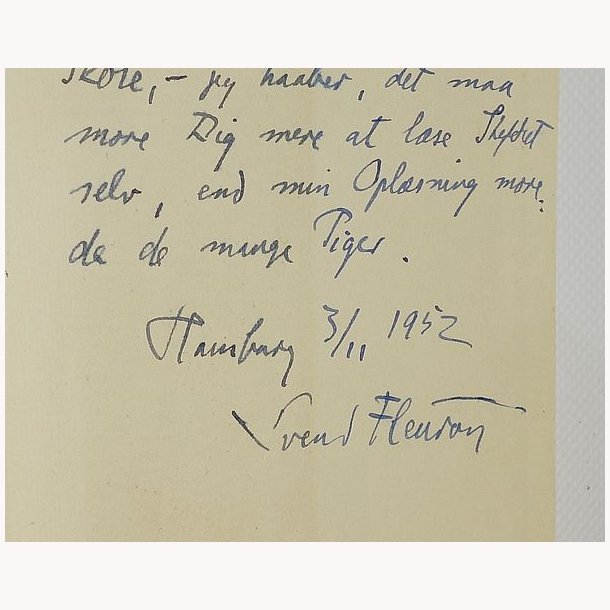 Skole, – jeg haaber, det maa
more Dig mere at læse Skriftet
selv, end min Oplæsning more-
de de mange Piger.
Hamburg 3/11 1952
Svend Fleuron